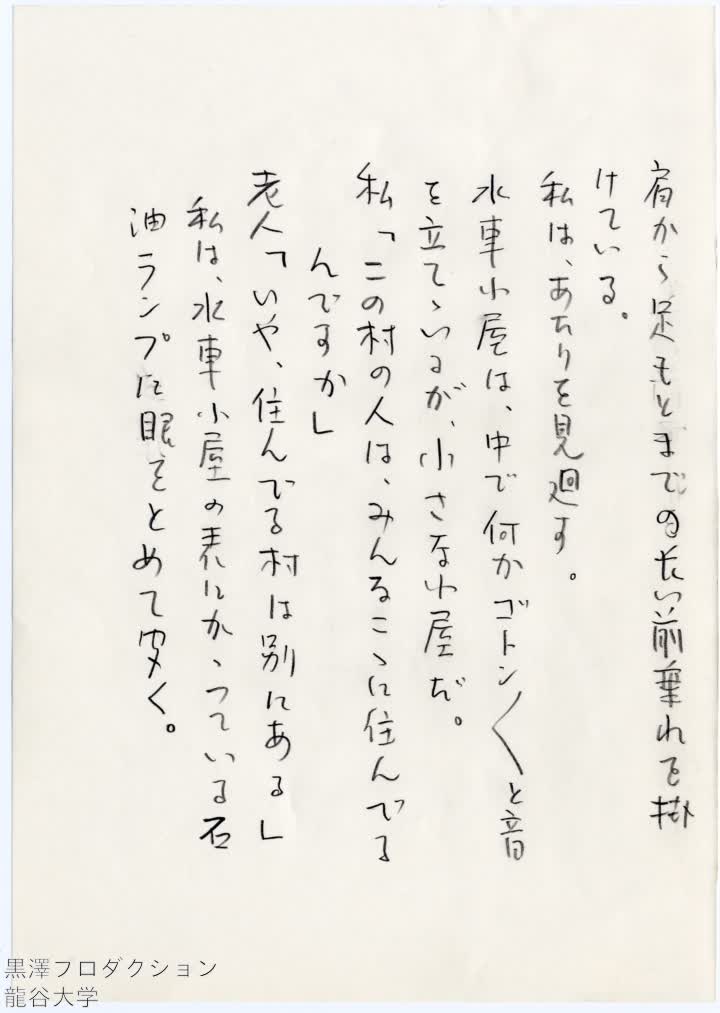 肩から足もとまでの長い前垂れを掛
けている。
私は、あたりを見廻す。
水車小屋は、中で何かゴトン〱と音
を立てゝいるが、小さな小屋だ。
私「この村の人は、みんなこゝに住んでる
んですか」
老人「いや、住んでる村は別にある」
私は、水車小屋の表にかゝっている石
油ランプに眼をとめて聞く。
黒澤プロダクション
龍谷大学